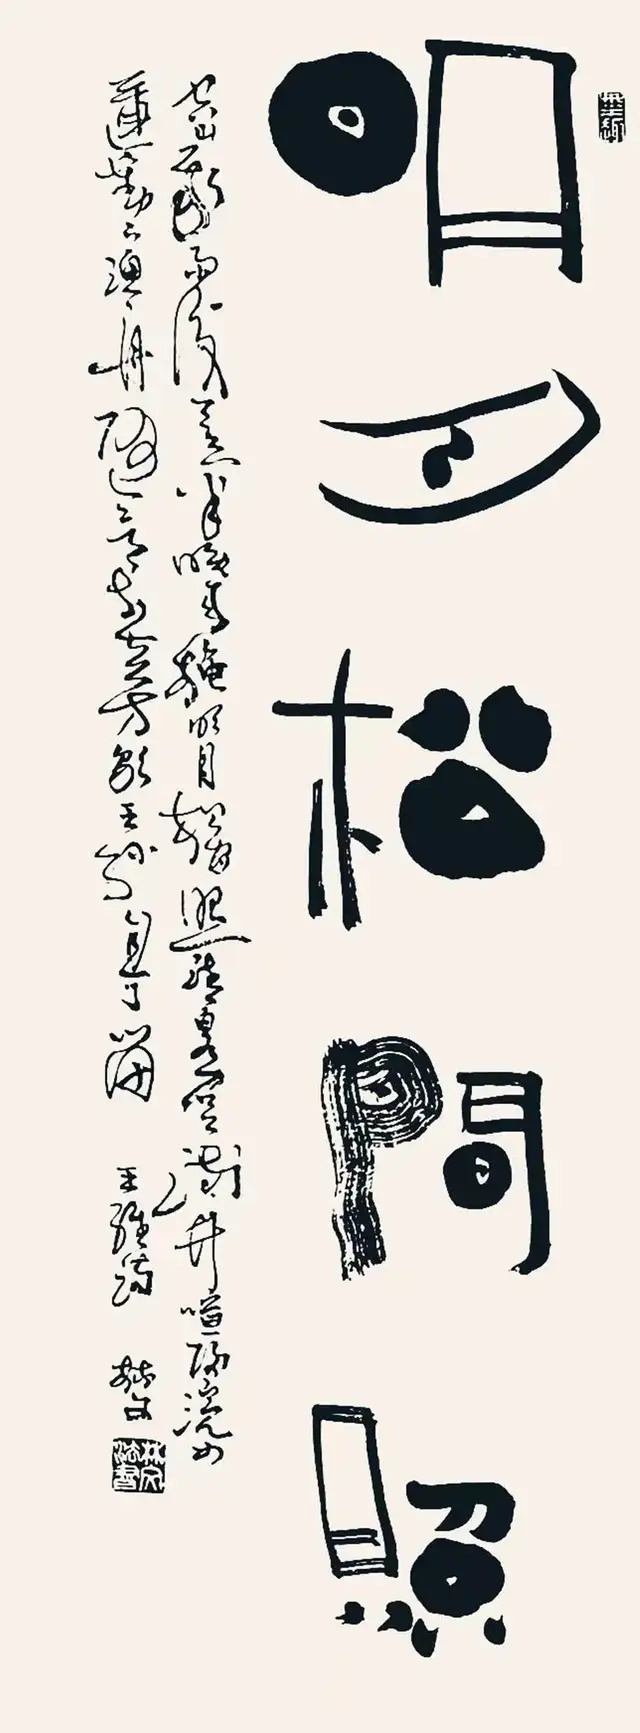 明月松間照
空山新雨後天氣晚來秋明月松間照清泉石上流竹喧歸浣女
蓮動下漁舟隨意春芳歇王孫自可留 王維詩